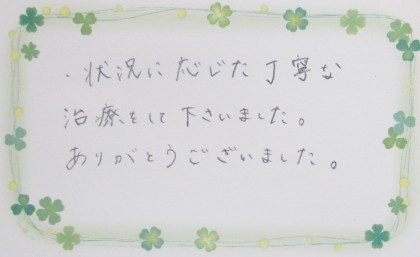 ・状況に応じた丁寧な
治療をして下さいました。
ありがとうございました。